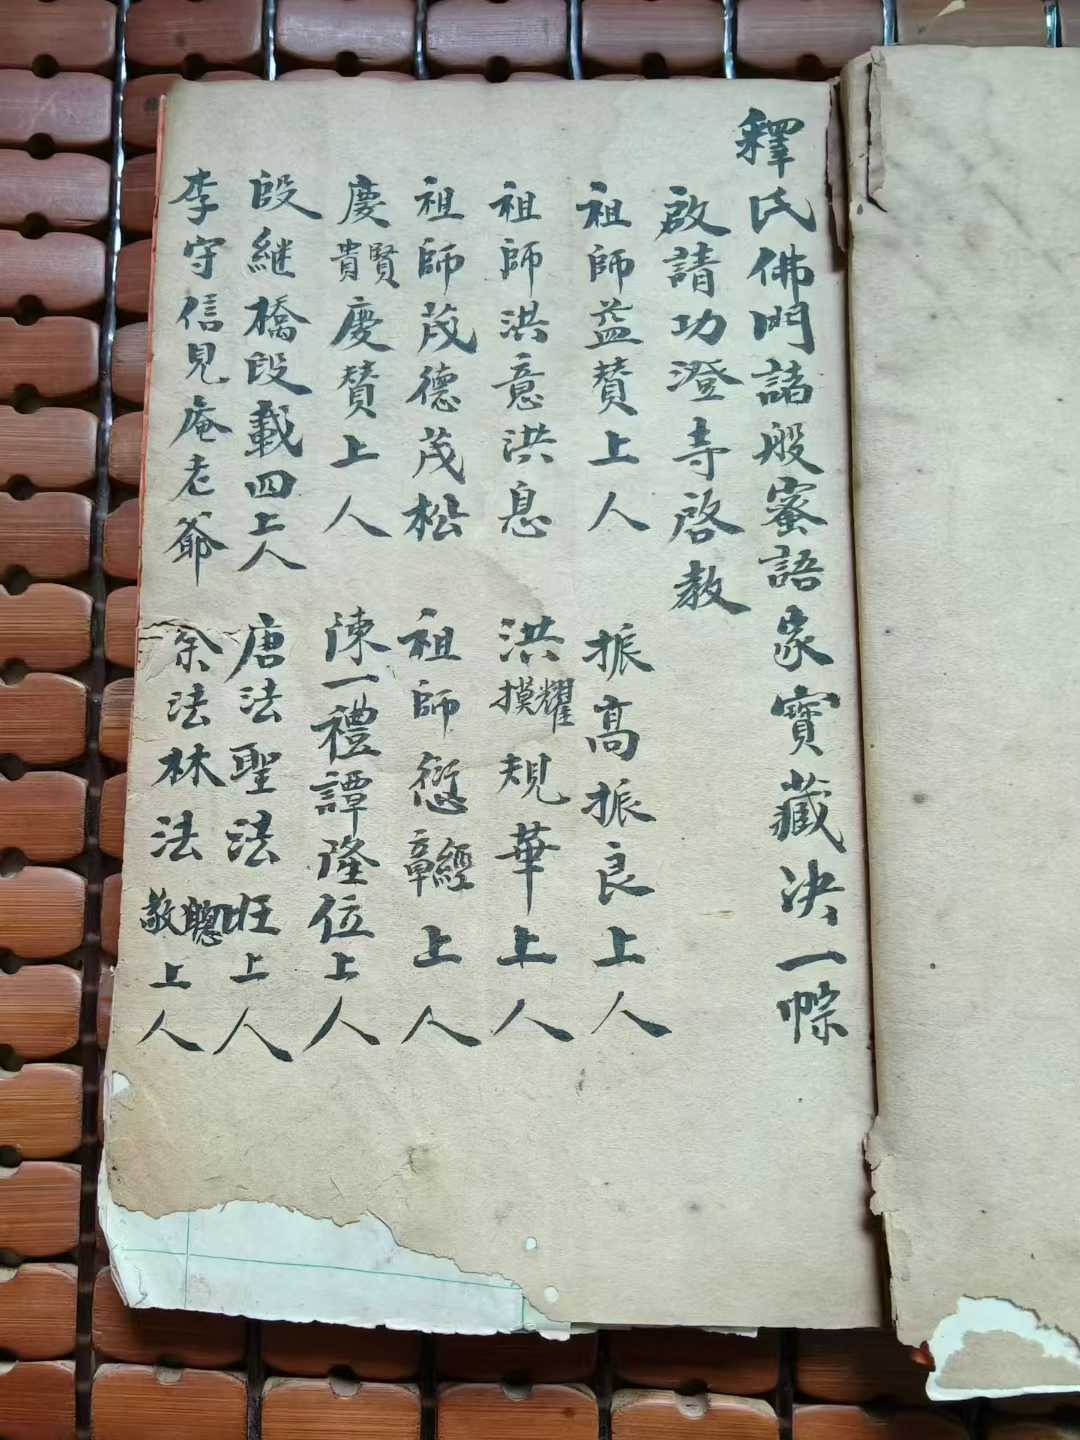 釋氏佛門諸般蜜語家寶藏决一㡓
啟請功澄寺啓教
祖師益贊上人 振高振良上人
祖師洪意洪息 洪摸耀規華上人
祖師茂德茂松 祖師愆章經上人
慶貴賢慶贊上人 陳一禮譚隆位上人
段継橋段載四上人 唐法聖法旺上人
李守信見庵老爺 余法林法敬聰上人